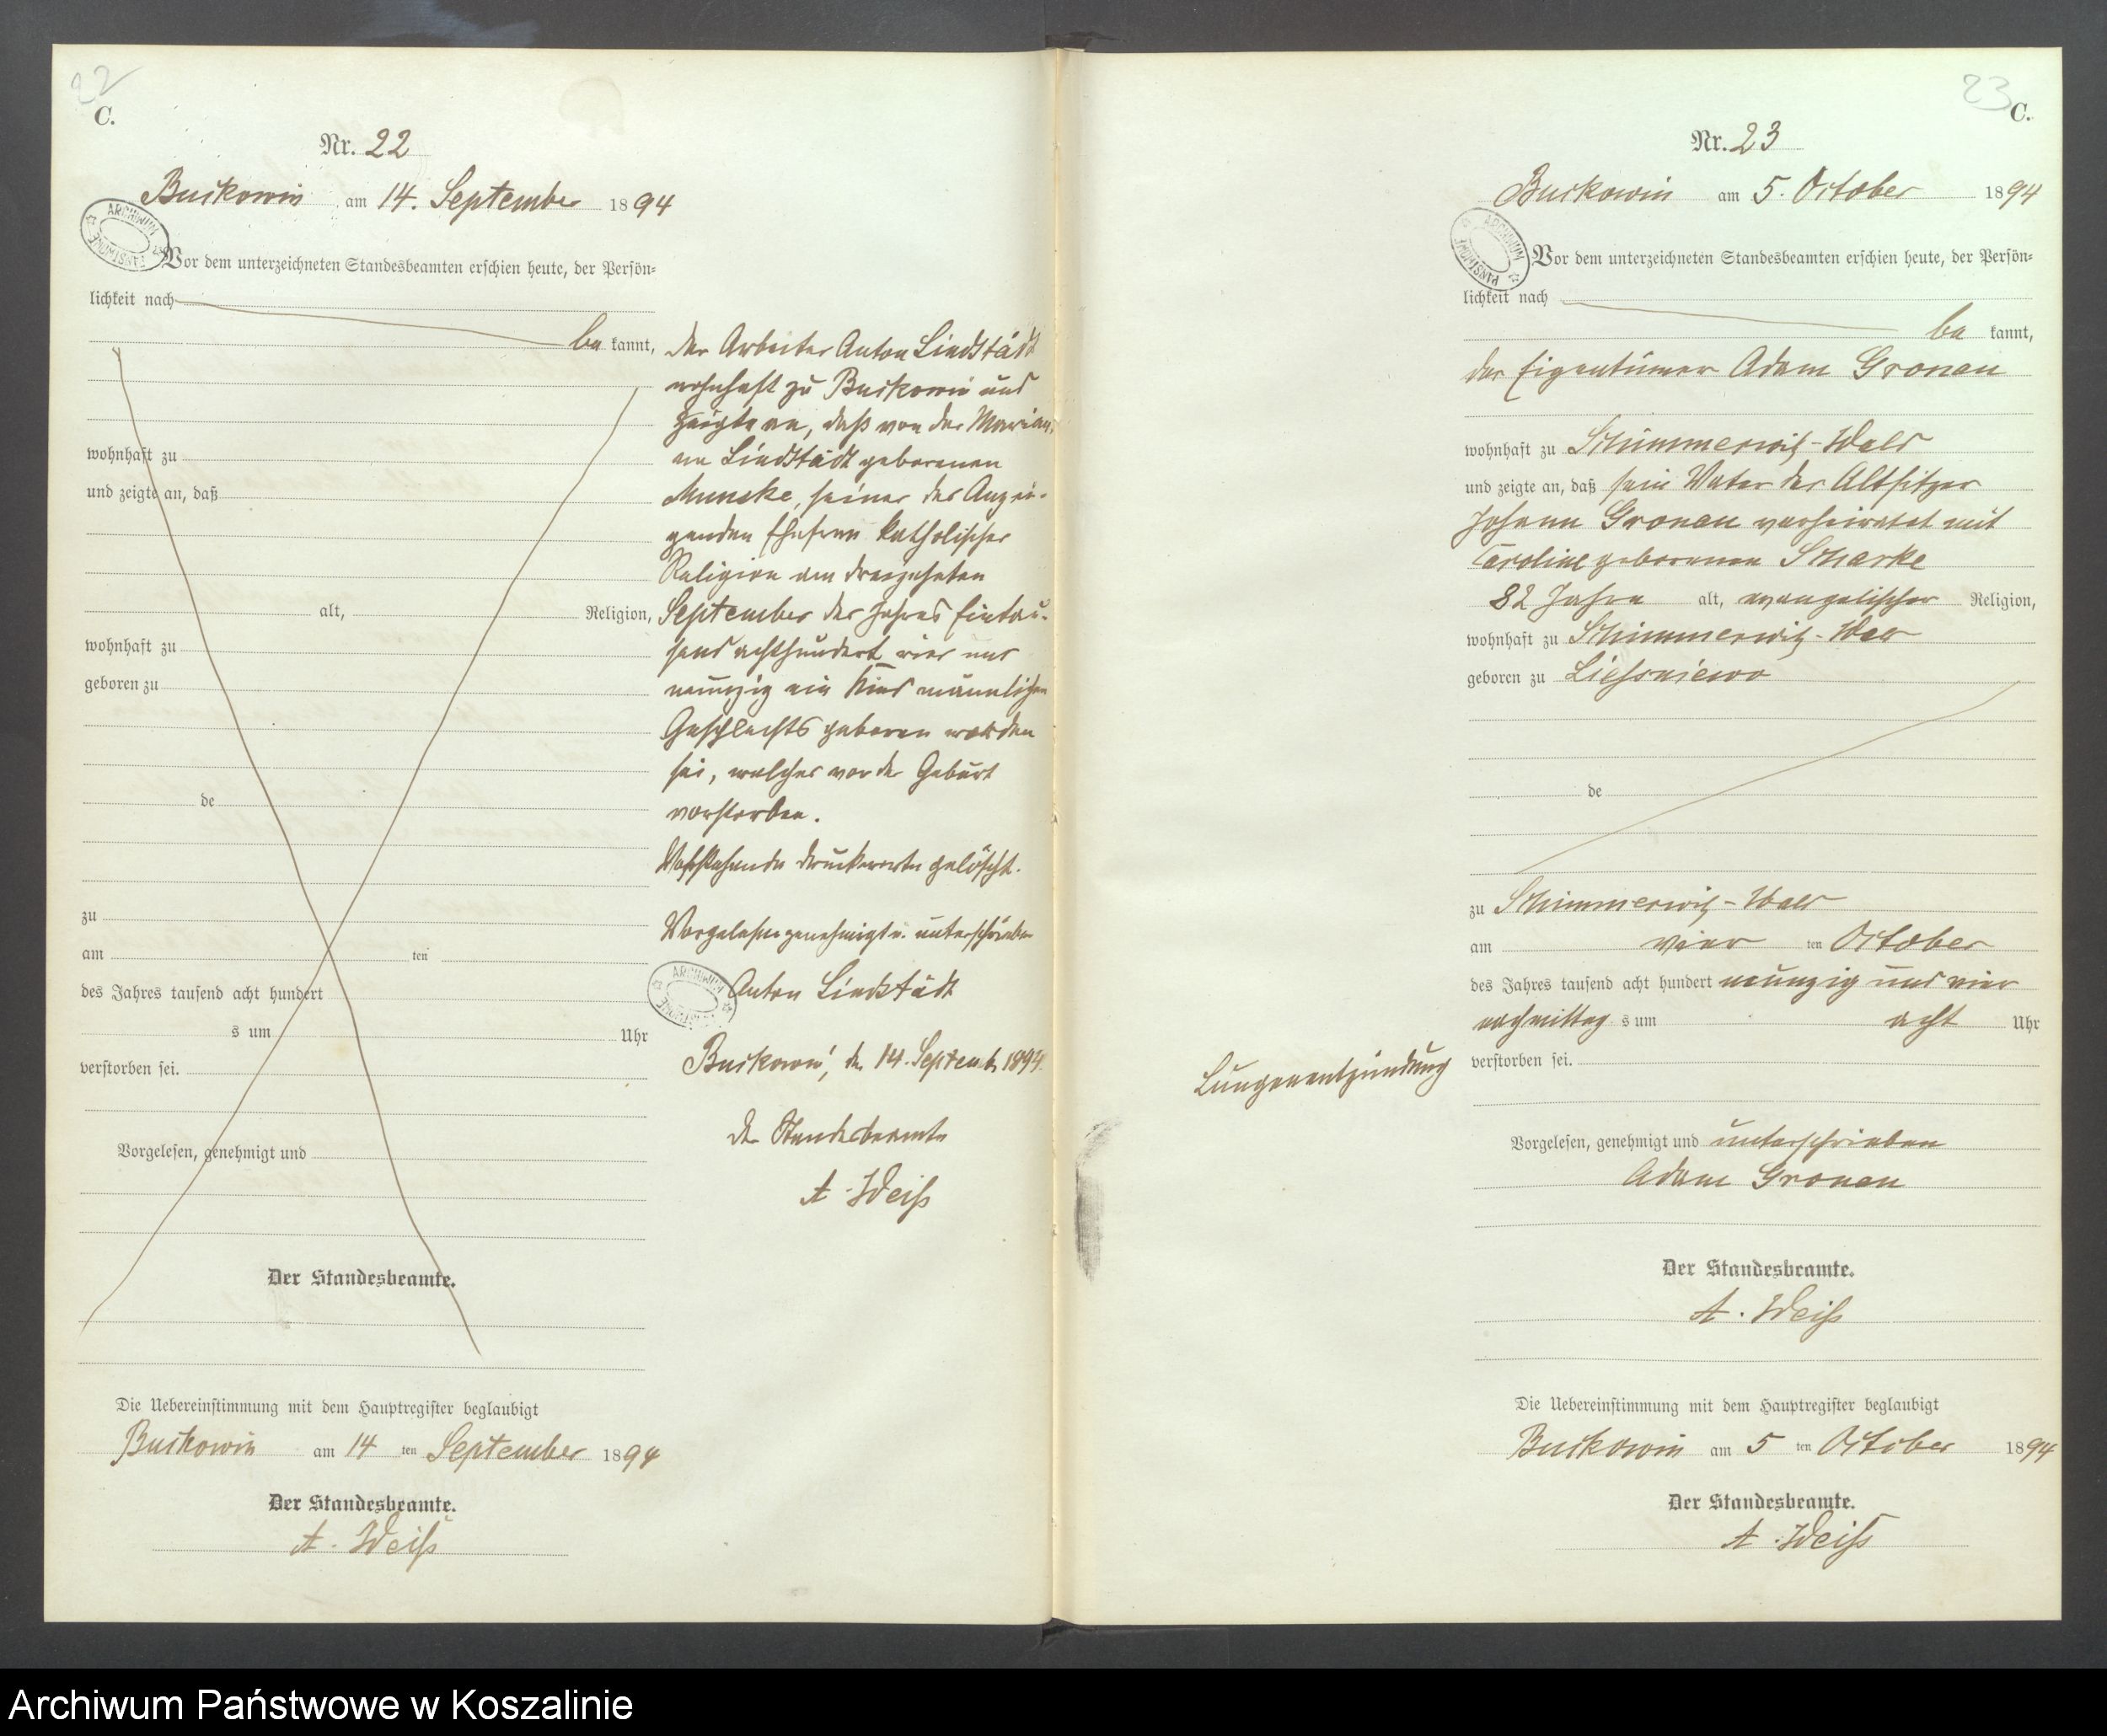 22
C.
Nr. 22
Buckowin am 14. September 1894
Vor dem unterzeichneten Standesbeamten erschien heute, der Persön=
lichkeit nach
be kannt,
wohnhaft zu
und zeigte an, daß
alt, Religion,
wohnhaft zu
geboren zu
de
zu
am ten
des Jahres tausend acht hundert
s um Uhr
verstorben sei.
Vorgelesen, genehmigt und
Der Standesbeamte.
der Arbeiter Anton Lindstädt
wohnhaft zu Buckowin und
zeigte an, daß von der Marian¬
ne Lindstädt geborenen
Munske, seiner des Anzei-
genden Ehefrau katholischer
Religion am dreizehnten
September des Jahres Eintau-
send achthundert vier und
neunzig ein Kind männlichen
Geschlechts geboren worden
sei, welches vor der Geburt
verstorben.
Vorstehende Druckworte gelöscht.
Vorgelesen genehmigt u. unterschrieben
Anton Lindstädt
Buckowin, den 14. Septemb. 1894.
Der Standesbeamte
A. Weiß
Die Uebereinstimmung mit dem Hauptregister beglaubigt
Buckowin am 14 ten September 1894
Der Standesbeamte.
A. Weiß
ARCHIWUM PAŃSTWOWE
23
C.
Nr. 23
Buckowin am 5. October 1894
Vor dem unterzeichneten Standesbeamten erschien heute, der Persön=
lichkeit nach
be kannt,
der Eigentümer Adam Gronau
wohnhaft zu Schimmerwitz-Wald
und zeigte an, daß sein Vater der Altsitzer
Johann Gronau verheiratet mit
Caroline geborenen Scharke
82 Jahre alt, evangelischer Religion,
wohnhaft zu Schimmerwitz-Wald
geboren zu Liessniewo
de
zu Schimmerwitz-Wald
am vier ten October
des Jahres tausend acht hundert neunzig und vier
nachmittag s um acht Uhr
verstorben sei.
Lungenentzündung
Vorgelesen, genehmigt und unterschrieben
Adam Gronau
Der Standesbeamte.
A. Weiß
Die Uebereinstimmung mit dem Hauptregister beglaubigt
Buckowin am 5 ten October 1894
Der Standesbeamte.
A. Weiß
Archiwum Państwowe w Koszalinie